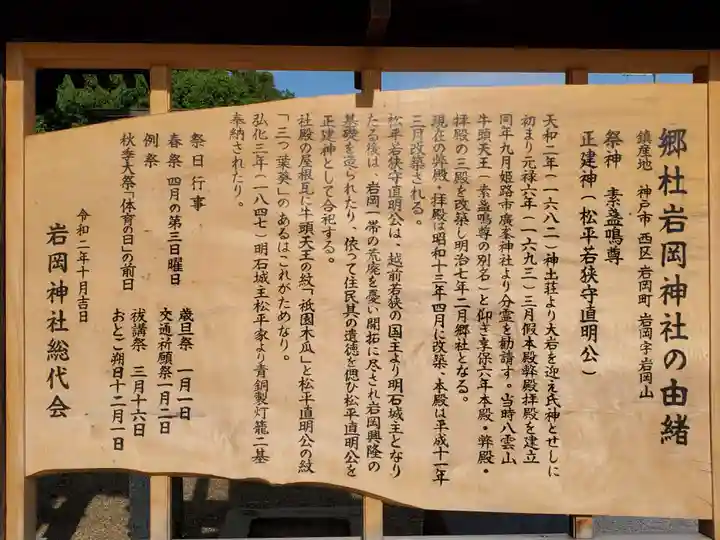 郷社岩岡神社の由緒
鎮座地 神戸市西区岩岡町岩岡字岩岡山
祭神 素盞鳴尊
正建神(松平若狭守直明公)
天和二年(一六八二)神出荘より大岩を迎え氏神とせしに
初まり元禄六年(一六九三)三月假本殿弊殿拝殿を建立
同年九月姫路市廣峯神社より分霊を勧請す。当時八雲山
牛頭天王(素盞鳴尊の別名)と仰ぎ享保六年本殿・弊殿・
拝殿の三殿を改築し明治七年二月郷社となる。
現在の弊殿・拝殿は昭和十三年四月に改築、本殿は平成十一年
三月改築される。
松平若狭守直明公は、越前若狭の国主より明石城主となり
たる後は、岩岡一帯の荒廃を憂い開拓に尽され岩岡興隆の
基礎を造られたり、依って住民其の遺徳を偲び松平直明公を
正建神として合祀する。
社殿の屋根瓦に牛頭天王の紋「祇園木瓜」と松平直明公の紋
「三つ葉葵」のあるはこれがためなり。
弘化三年(一八四七)明石城主松平家より青銅製灯籠二基
奉納されたり。
祭日行事
春祭 四月の第三日曜日
例祭
秋季大祭「体育の日」の前日
歳旦祭 一月一日
交通祈願祭 一月二日
祓講祭 三月十六日
おとご朔日 十二月一日
令和二年十月吉日
岩岡神社総代会